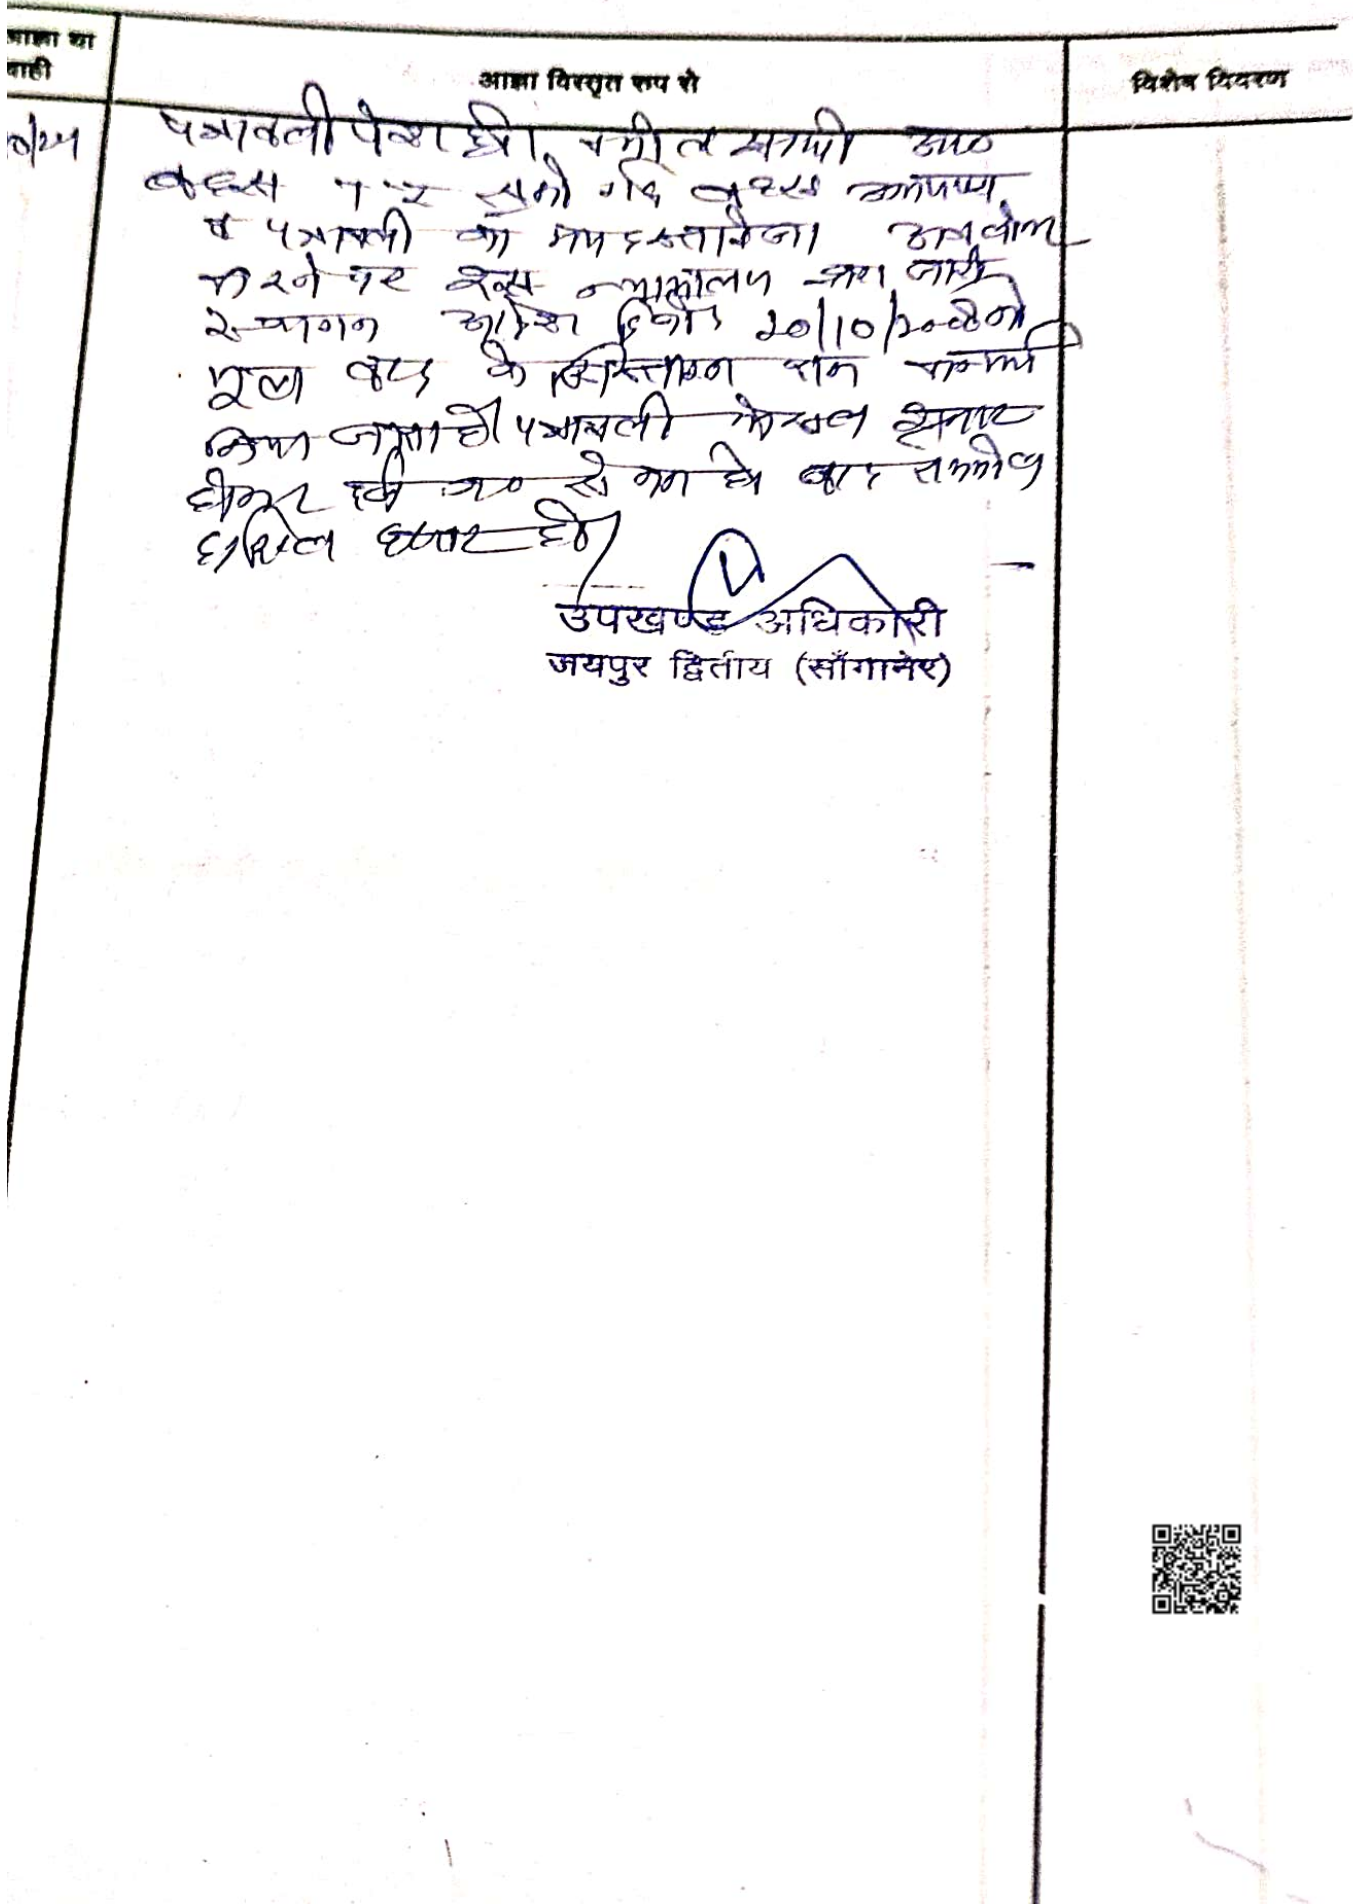 आज्ञा या
वाही
आज्ञा विस्तृत रूप से
विशेष विवरण
पत्रावली पेश हुई। वकील उप०
बहस सुनी गई बहस
व पत्रावली का मय दस्तावेजात अवलोकन
करने पर इस न्यायालय द्वारा जारी
स्थगन आदेश दिनांक 20/10/2008 को
मूल वाद के निस्तारण तक
किया जाता है। पत्रावली फैसल शुमार
होकर नम्बर से कम हो बाद तकमील
दाखिल दफ्तर हो।
उपखण्ड अधिकारी
जयपुर द्वितीय (साँगानेर)